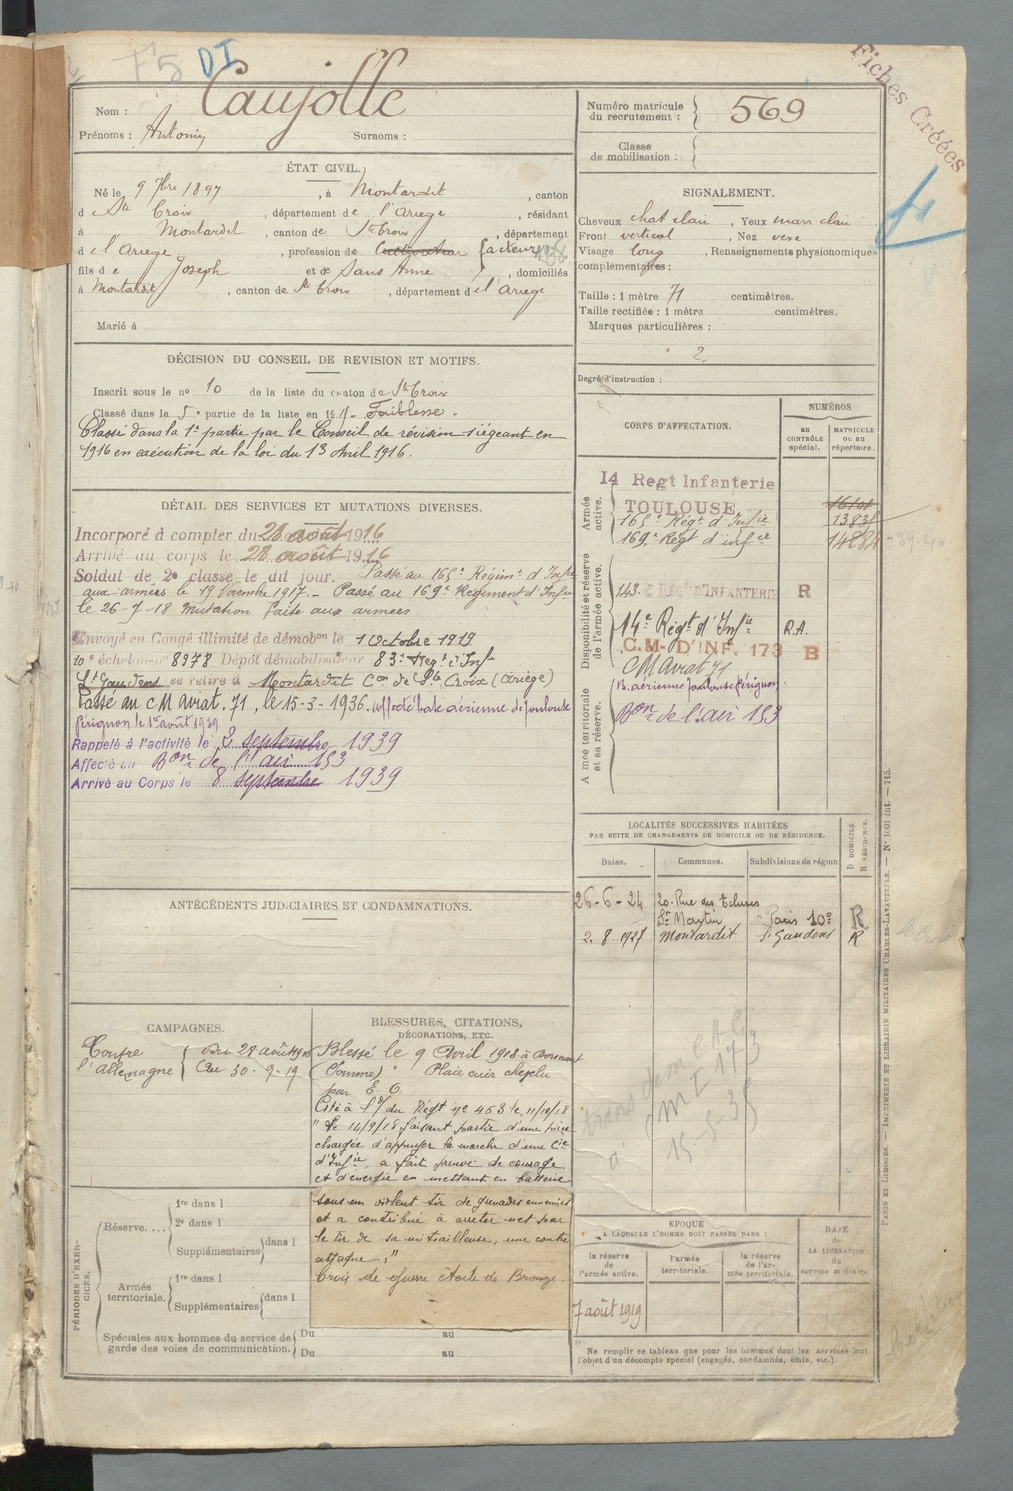 F5 DI
Fiches Créées
Nom : Caujolle
Prénoms : Antonin Surnoms :
Numéro matricule du recrutement : 569
Classe de mobilisation :
ÉTAT CIVIL.
Né le 9 7bre 1897, à Montardit, canton
d e Ste Croix, département de l'Ariège, résidant
à Montardit, canton de Ste Croix, département
d e l'Ariège, profession de Cultivateur facteur
fils d e Joseph et de Sans Anne, domiciliés
à Montardit, canton de Ste Croix, département d e l'Ariège
Marié à
SIGNALEMENT.
Cheveux chat clair, Yeux marr clair
Front vertical, Nez vexe
Visage long, Renseignements physionomiques
complémentaires :
Taille : 1 mètre 71 centimètres.
Taille rectifiée : 1 mètre centimètres.
Marques particulières :
2.
Degré d'instruction :
DÉCISION DU CONSEIL DE REVISION ET MOTIFS.
Inscrit sous le nº 10 de la liste du canton de Ste Croix
Classé dans la 5e partie de la liste en 191 Faiblesse.
Classé dans la 1e partie par le Conseil de révision siégeant en
1916 en exécution de la loi du 13 Avril 1916.
DÉTAIL DES SERVICES ET MUTATIONS DIVERSES.
Incorporé à compter du 28 août 1916
Arrivé au corps le 28 août 1916
Soldat de 2e classe le dit jour. Passé au 165e Régimt d'Infie
aux armées le 19 Novembre 1917. - Passé au 169e Régiment d'Infie
le 26-7-18 Mutation faite aux armées.
Envoyé en Congé illimité de démobon le 1 Octobre 1919
10e échelon nº 8978 Dépôt démobilisateur 83e Regt d'Inf
St Gaudens se retire à Montardit Con de Ste Croix (Ariège)
Passé au CM Aviat. 71, le 15-3-1936. affecté base aérienne de Toulouse
Pérignon le 1er août 1939
Rappelé à l'activité le 2 septembre 1939
Affecté au Bon de l'air 153
Arrivé au Corps le 8 septembre 1939
CORPS D'AFFECTATION.
NUMÉROS
au CONTRÔLE spécial.
MATRICULE ou au répertoire.
Armée active.
14 Regt Infanterie
TOULOUSE
165e Régt d'Infie 13835
169e Régt d'infie
39-40
Disponibilité et réserve de l'armée active.
143e REG. D'INFANTERIE R
14e Régt d'Infie R.A.
C.M. D'INF. 173 B
CM aviat 71
Armée territoriale et sa réserve.
B. aérienne Toulouse Pérignon
Bon de l'air 153
LOCALITÉS SUCCESSIVES HABITÉES
PAR SUITE DE CHANGEMENTS DE DOMICILE OU DE RÉSIDENCE.
Dates. Communes. Subdivisions de région D DOMICILE. R RÉSIDENCE.
26-6-24 20. Rue des Ecluses
St Martin Paris 10e R
2-8-1927 Montardit St Gaudens R
ANTÉCÉDENTS JUDICIAIRES ET CONDAMNATIONS.
CAMPAGNES.
Contre l'Allemagne
Du 28 août 1916
Au 30-9-19
BLESSURES, CITATIONS,
DÉCORATIONS, ETC.
Blessé le 9 Avril 1918 à
(Somme) Plaie cuir chevelu
par E. O.
Cité à l'O/ du Régt nº 453 le 11/10/18
" Le 14/9/18 faisant partie d'une pièce
chargée d'appuyer la marche d'une Cie
d'Infie, a fait preuve de courage
et d'énergie en mettant en batterie
sous un violent tir de grenades ennemies
et a contribué à arrêter net par
le tir de sa mitrailleuse, une contre
attaque -"
Croix de guerre étoile de Bronze.
PÉRIODES D'EXERCICES.
Réserve....
1re dans l
2e dans l
Supplémentaires dans l
Armée territoriale.
1re dans l
Supplémentaires dans l
Spéciales aux hommes du service de garde des voies de communication.
Du au
Du au
ÉPOQUE
A LAQUELLE L'HOMME DOIT PASSER DANS :
la réserve de l'armée active. l'armée territoriale. la réserve de l'armée territoriale.
DATE de LA LIBÉRATION du service militaire.
7 août 1919
Ne remplir ce tableau que pour les hommes dont les services font
l'objet d'un décompte spécial (engagés, condamnés, omis, etc.).
PARIS ET LIMOGES. — IMPRIMERIE ET LIBRAIRIE MILITAIRES CHARLES-LAVAUZELLE. — Nº 1001 int. — 715.